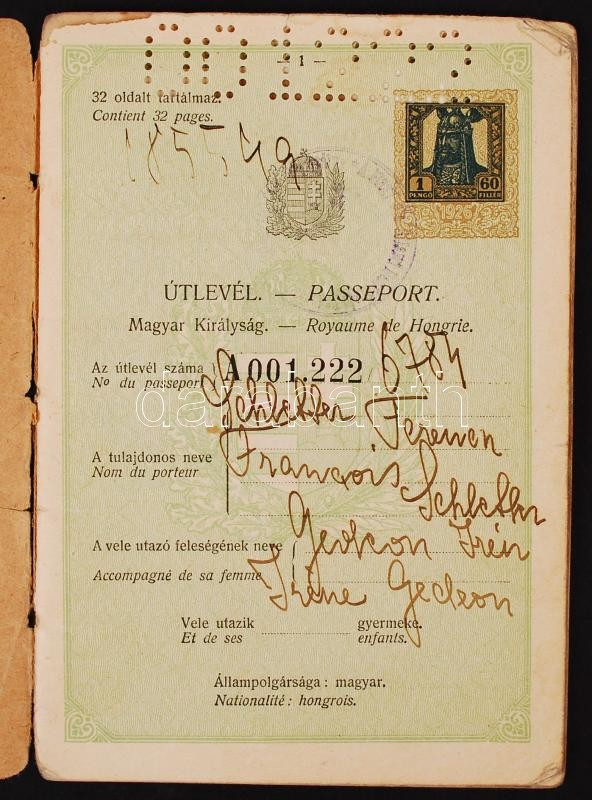 — 1 —
32 oldalt tartalmaz.
Contient 32 pages.
1 PENGŐ 60 FILLÉR
1926
ÚTLEVÉL. — PASSEPORT.
Magyar Királyság. — Royaume de Hongrie.
Az útlevél száma
No du passeport
A001.222 / 6784
A tulajdonos neve
Nom du porteur
Schletter Ferenc
François Schletter
A vele utazó feleségének neve
Accompagné de sa femme
Gedeon Irén
Irène Gedeon
Vele utazik gyermeke.
Et de ses enfants.
Állampolgársága : magyar.
Nationalité : hongrois.
darabanth